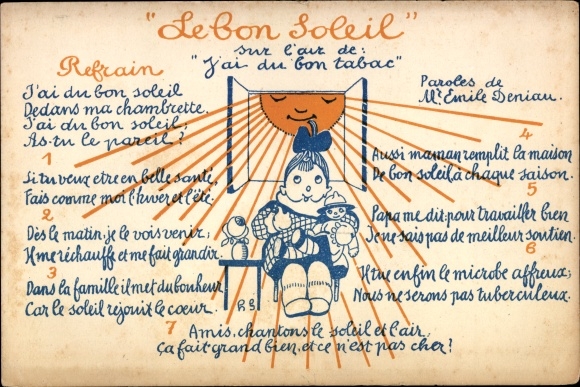 "Le bon Soleil"
sur l'air de:
"J'ai du bon tabac"
Refrain
J'ai du bon soleil
Dedans ma chambrette.
J'ai du bon soleil;
As-tu le pareil?
Paroles de
Mr. Emile Deniau.
1
Si tu veux etre en belle santé,
Fais comme moi l'hiver et l'été.
2
Dès le matin, je le vois venir;
Il me réchauffe et me fait grandir.
3
Dans la famille il met du bonheur
Car le soleil réjouit le cœur.
4
Aussi maman remplit la maison
De bon soleil à chaque saison.
5
Papa me dit: pour travailler bien
Je ne sais pas de meilleur soutien.
6
Il tue enfin le microbe affreux;
Nous ne serons pas tuberculeux.
R S
7
Amis, chantons le soleil et l'air,
Ça fait grand bien, et ce n'est pas cher!